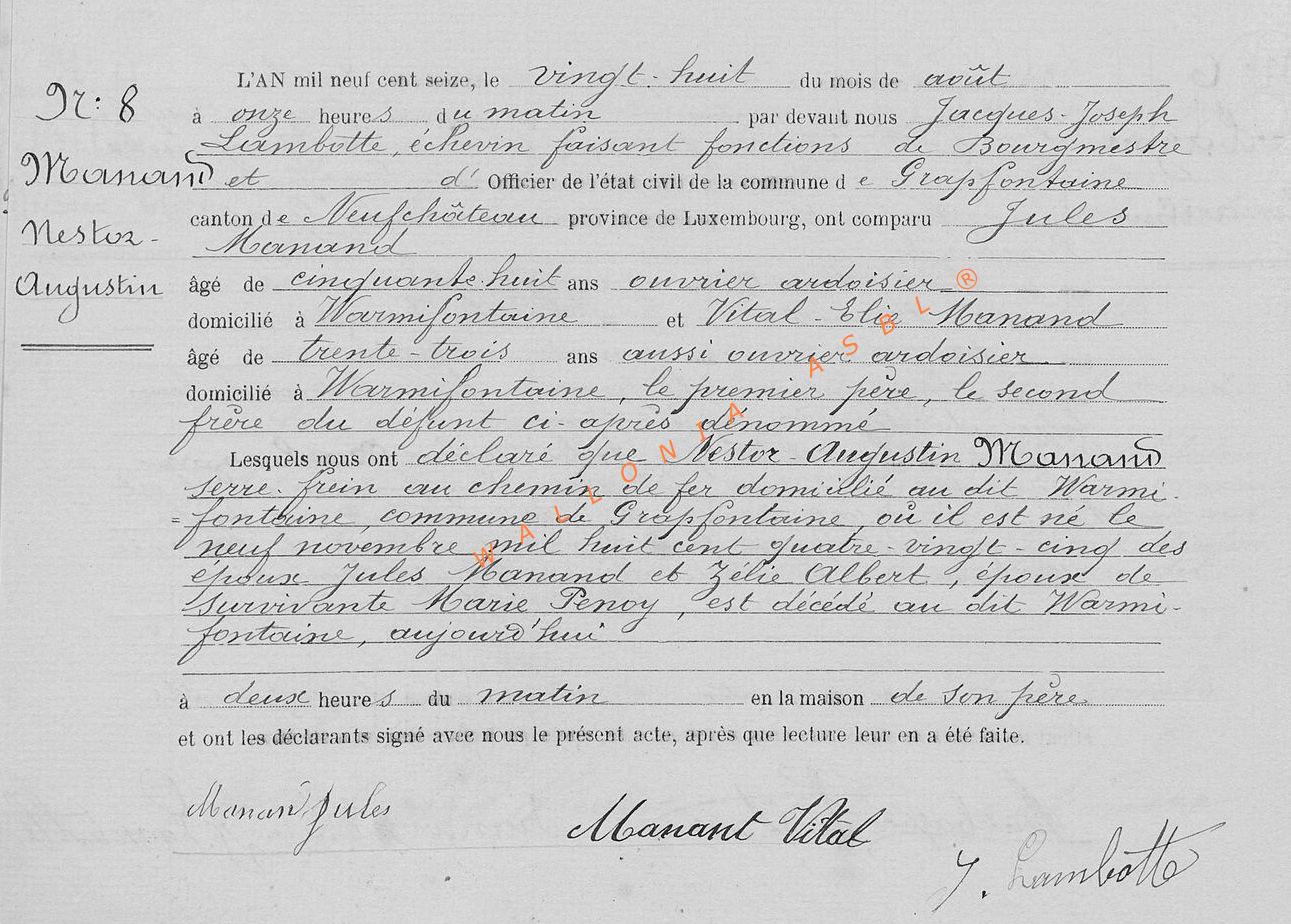 Nr: 8
Manand
Nestor-
Augustin
L'AN mil neuf cent seize, le vingt-huit du mois de août
à onze heures du matin par devant nous Jacques-Joseph
Lambotte, échevin faisant fonctions de Bourgmestre
et d' Officier de l'état civil de la commune de Grapfontaine
canton de Neufchâteau province de Luxembourg, ont comparu Jules
Manand
âgé de cinquante-huit ans ouvrier ardoisier
domicilié à Warmifontaine et Vital-Elie Manand
âgé de trente-trois ans aussi ouvrier ardoisier
domicilié à Warmifontaine, le premier père, le second
frère du défunt ci-après dénommé
Lesquels nous ont déclaré que Nestor-Augustin Manand
serre-frein au chemin de fer domicilié au dit Warmi-
=fontaine, commune de Grapfontaine, où il est né le
neuf novembre mil huit cent quatre-vingt-cinq des
époux Jules Manand et Zélie Albert, époux de
survivante Marie Penoy, est décédé au dit Warmi-
fontaine, aujourd'hui
à deux heures du matin en la maison de son père
et ont les déclarants signé avec nous le présent acte, après que lecture leur en a été faite.
Manand Jules
Manant Vital
J. Lambotte
WALLONIA ASBL ®